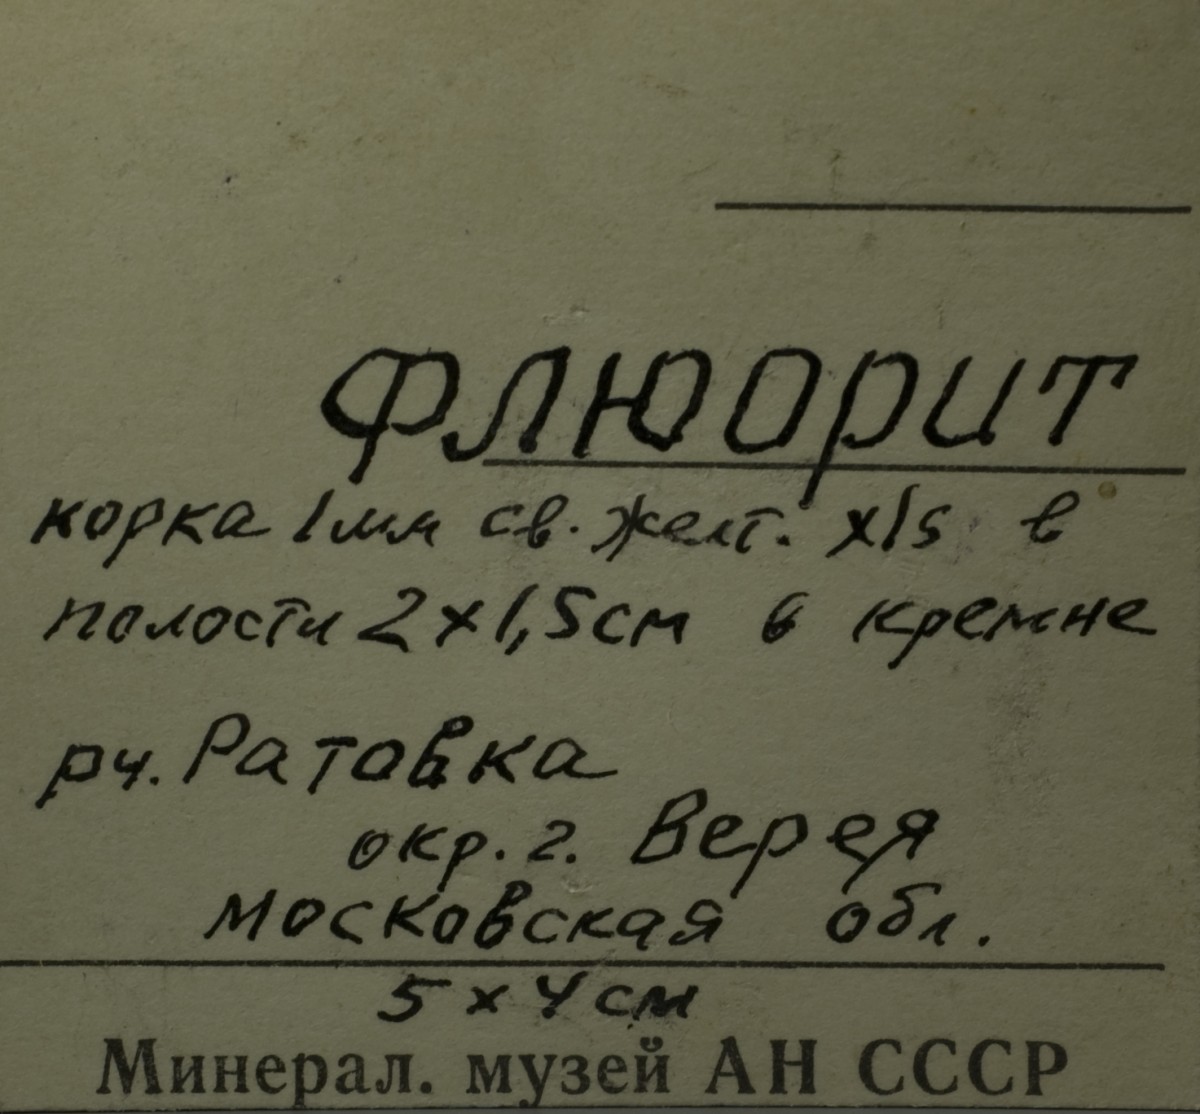 Флюорит
корка 1мм св. желт. xls в
полости 2x1,5см в кремне
рч. Ратовка
окр. г. Верея
Московская обл.
5 x 4 см
Минерал. музей АН СССР